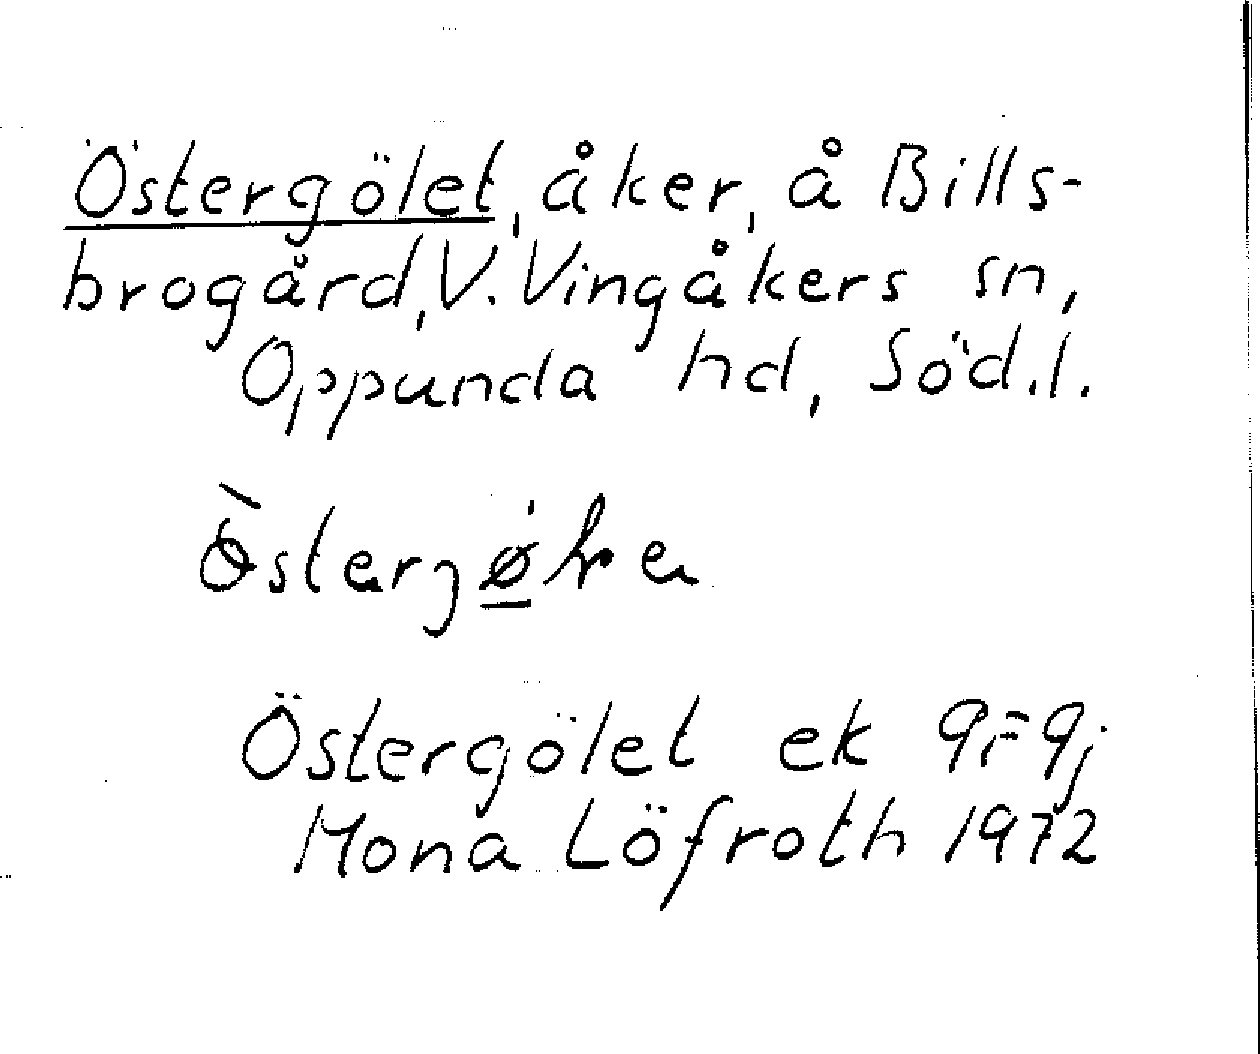 Östergölet, åker, å Bills-
brogård, V. Vingåkers sn,
Oppunda hd, Söd.l.
Östergölet ek 9i=9j
Mona Löfroth 1972